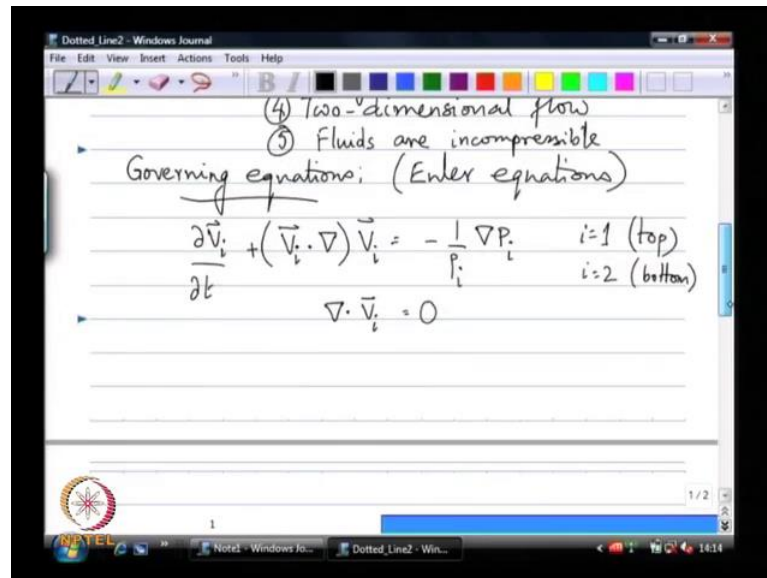 Dotted_Line2 - Windows Journal
File Edit View Insert Actions Tools Help
B I
(4) Two-dimensional flow
(5) Fluids are incompressible
Governing equations; (Enler equations)
∂V⃗ᵢ/∂t + (V⃗ᵢ·∇) V⃗ᵢ = - 1/ρᵢ ∇Pᵢ i=1 (top)
i=2 (bottom)
∇·V⃗ᵢ = 0
1/2
1
NPTEL
Note1 - Windows Jo... Dotted_Line2 - Win... 14:14